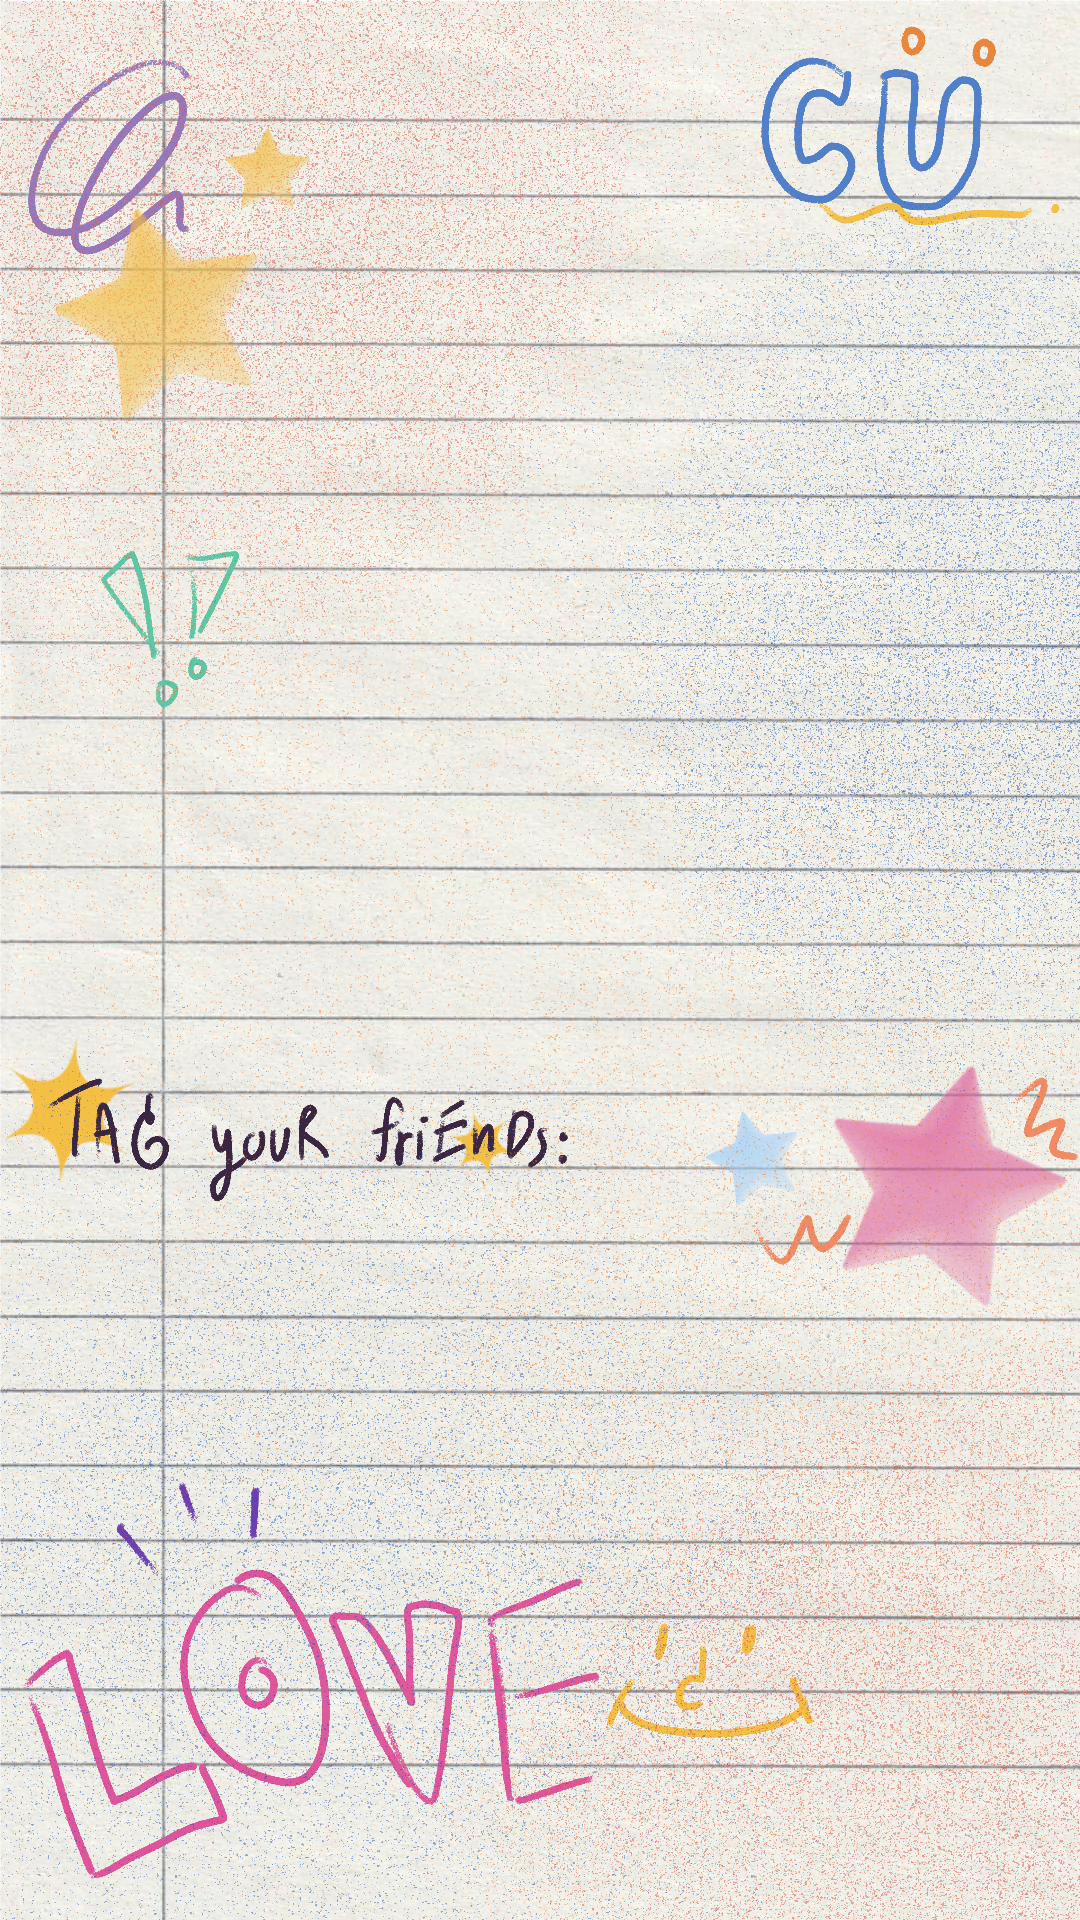 CÜ
!!
TAG youR friEnDs:
LOVE